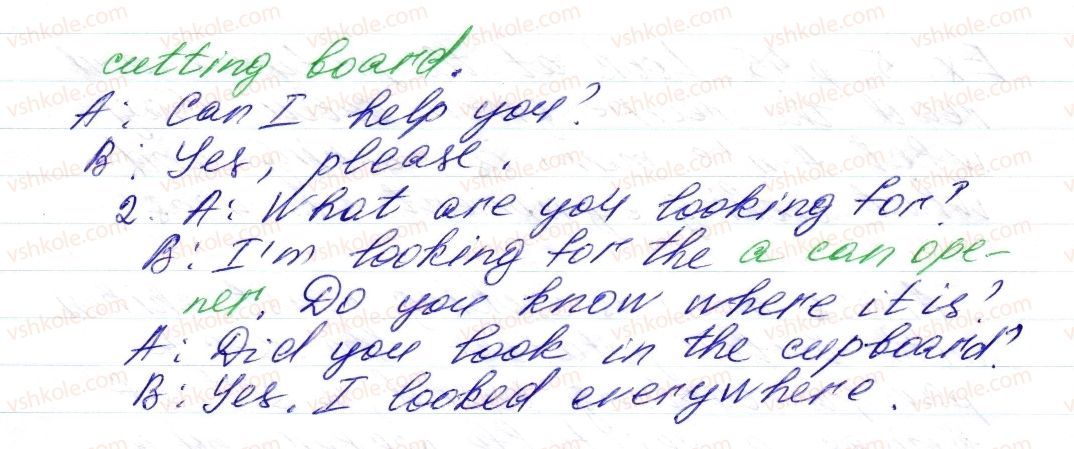 cutting board.
A: Can I help you?
B: Yes, please.
2. A: What are you looking for?
B: I'm looking for the a can ope-
ner. Do you know where it is?
A: Did you look in the cupboard?
B: Yes. I looked everywhere.